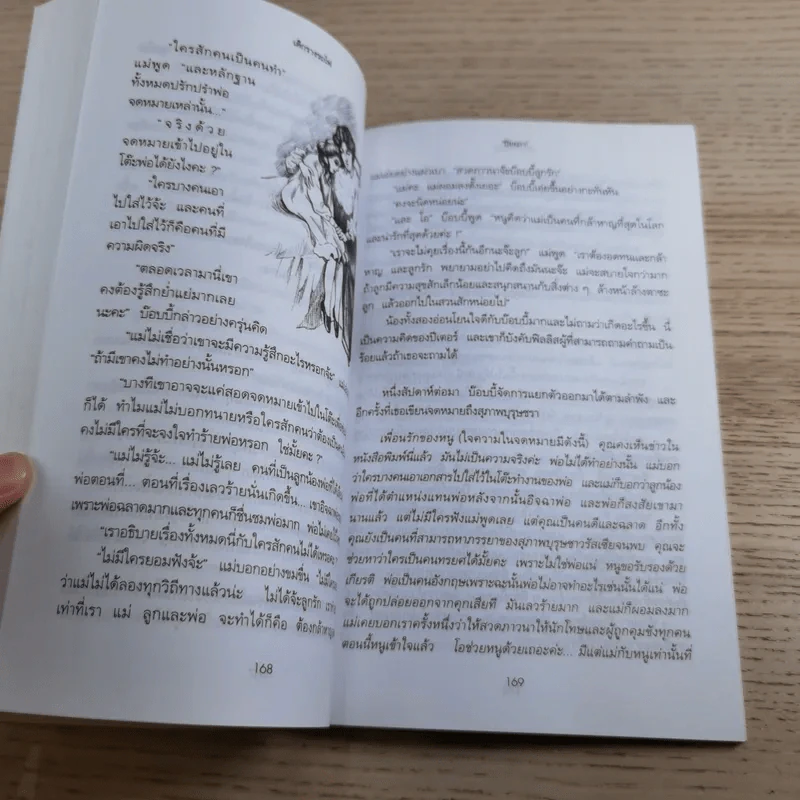 เด็กชายรถไฟ
"ใครสักคนเป็นคนทำ"
แม่พูด "และหลักฐาน
ทั้งหมดปรักปรำพ่อ
จดหมายเหล่านั้น..."
"จริงด้วย
จดหมายเข้าไปอยู่ใน
โต๊ะพ่อได้ยังไงคะ ?"
"ใครบางคนเอา
ไปใส่ไว้จ้ะ และคนที่
เอาไปใส่ไว้ก็คือคนที่มี
ความผิดจริง"
"ตลอดเวลามานี่เขา
คงต้องรู้สึกย่ำแย่มากเลย
นะคะ" บ๊อบบี้กล่าวอย่างครุ่นคิด
"แม่ไม่เชื่อว่าเขาจะมีความรู้สึกอะไรหรอกจ้ะ" แม่
"ถ้ามีเขาคงไม่ทำอย่างนั้นหรอก"
"บางทีเขาอาจจะแค่สอดจดหมายเข้าไปในโต๊ะ
ก็ได้ ทำไมแม่ไม่บอกทนายหรือใครสักคนว่าต้องเป็น
คงไม่มีใครที่จะจงใจทำร้ายพ่อหรอก ใช่มั้ยคะ ?"
"แม่ไม่รู้จ้ะ... แม่ไม่รู้เลย คนที่เป็นลูกน้องพ่อที่ได้
พ่อตอนที่... ตอนที่เรื่องเลวร้ายนั่นเกิดขึ้น... เขาอิจฉา
เพราะพ่อฉลาดมากและทุกคนก็ชื่นชมพ่อมาก พ่อไม่
"เราอธิบายเรื่องทั้งหมดนี่กับใครสักคนไม่ได้เหรอคะ
"ไม่มีใครยอมฟังจ้ะ" แม่บอกอย่างขมขื่น "ไม่มี
ว่าแม่ไม่ได้ลองทุกวิถีทางแล้วน่ะ ไม่ได้จ้ะลูกรัก
เท่าที่เรา แม่ ลูกและพ่อ จะทำได้ก็คือ ต้องกล้า
168
"สวดภาวนาจ้ะบ๊อบบี้ลูกรัก"
"แม่คะ แม่ผอมลงตั้งเยอะ" บ๊อบบี้เอ่ยขึ้นอย่างทันทัน
"คงจะนิดหน่อยน่ะ"
"และ โอ" บ๊อบบี้พูด "หนูคิดว่าแม่เป็นคนที่กล้าหาญที่สุดในโลก
และน่ารักที่สุดด้วยค่ะ !"
"เราจะไม่คุยเรื่องนี้กันอีกนะจ๊ะลูก" แม่พูด "เราต้องอดทนและกล้า
หาญ และลูกรัก พยายามอย่าไปคิดถึงมันนะจ๊ะ แม่จะสบายใจกว่ามาก
ถ้าลูกมีความสุขสักเล็กน้อยและสนุกสนานกับสิ่งต่าง ๆ ล้างหน้าล้างตาซะ
ลูก แล้วออกไปในสวนสักหน่อยไป"
น้องทั้งสองอ่อนโยนใจดีกับบ๊อบบี้มากและไม่ถามว่าเกิดอะไรขึ้น นี่
เป็นความคิดของปีเตอร์ และเขาก็บังคับฟิลลิสผู้ที่สามารถถามคำถามเป็น
ร้อยแล้วถ้าเธอจะถามได้
หนึ่งสัปดาห์ต่อมา บ๊อบบี้จัดการแยกตัวออกมาได้ตามลำพัง และ
อีกครั้งที่เธอเขียนจดหมายถึงสุภาพบุรุษชรา
เพื่อนรักของหนู (ใจความในจดหมายมีดังนี้) คุณคงเห็นข่าวใน
หนังสือพิมพ์นี่แล้ว มันไม่เป็นความจริงค่ะ พ่อไม่ได้ทำอย่างนั้น แม่บอก
ว่าใครบางคนเอาเอกสารไปใส่ไว้ในโต๊ะทำงานของพ่อ และแม่ก็บอกว่าลูกน้อง
พ่อที่ได้ตำแหน่งแทนพ่อหลังจากนั้นอิจฉาพ่อ และพ่อก็สงสัยเขามา
นานแล้ว แต่ไม่มีใครฟังแม่พูดเลย แต่คุณเป็นคนดีและฉลาด อีกทั้ง
คุณยังเป็นคนที่สามารถหาภรรยาของสุภาพบุรุษชาวรัสเซียจนพบ คุณจะ
ช่วยหาว่าใครเป็นคนทรยศได้มั้ยคะ เพราะไม่ใช่พ่อแน่ หนูขอรับรองด้วย
เกียรติ พ่อเป็นคนอังกฤษเพราะฉะนั้นพ่อไม่อาจทำอะไรเช่นนั้นได้แน่ พ่อ
จะได้ถูกปล่อยออกจากคุกเสียที มันแลวร้ายมาก และแม่ก็ผอมลงมาก
แม่เคยบอกเราครั้งหนึ่งว่าให้สวดภาวนาให้นักโทษและผู้ถูกคุมขังทุกคน
ตอนนี้หนูเข้าใจแล้ว โอช่วยหนูด้วยเถอะค่ะ... มีแต่แม่กับหนูเท่านั้นที่
169